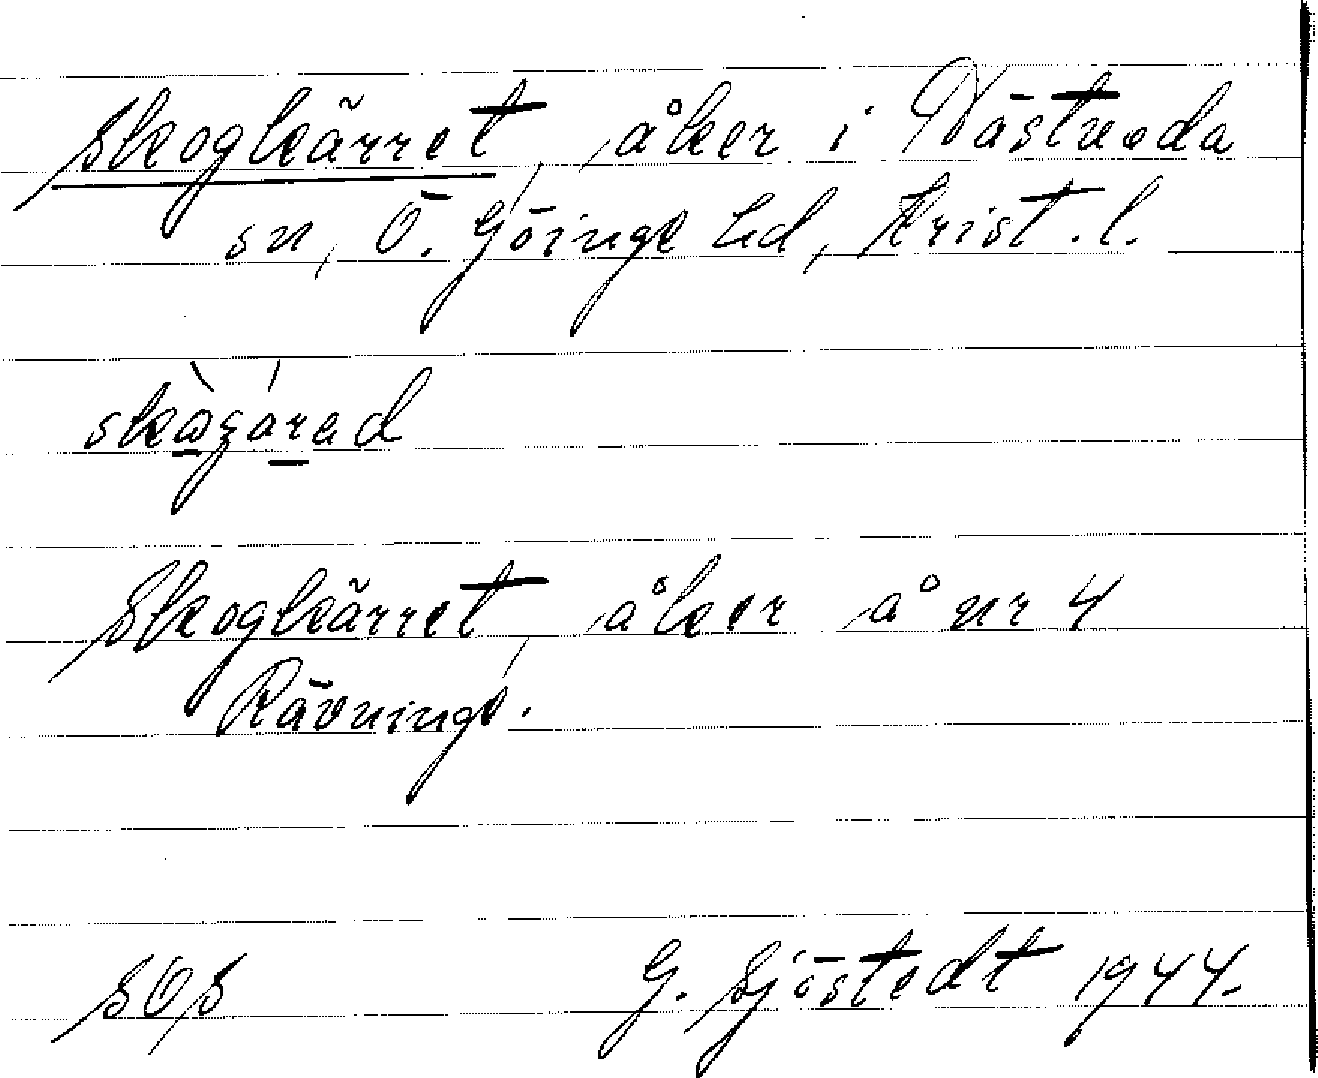 Skogkärret, åker i Västra
sn, Ö. Göinge hd, Krist. l.
Skogkärret, åker å nr 4
Rävninge.
SOS G. Sjöstedt 1944.